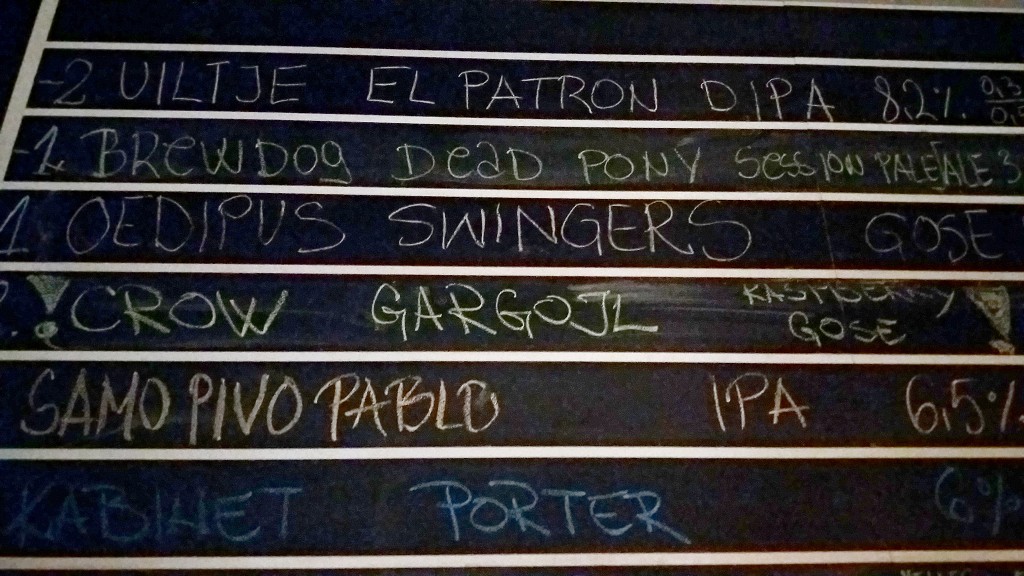 -2 UILTJE EL PATRON D.IPA 8.2%. 0,3
-1 BREWDOG DEAD PONY SESSION PALE ALE 3
1. OEDIPUS SWINGERS GOSE
! CROW GARGOJL RASPBERRY GOSE
SAMO PIVO PABLO IPA 6,5%
KABINET PORTER 6%